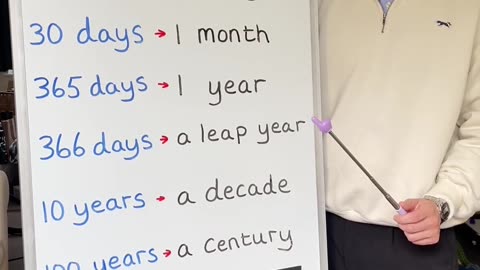 30 days → 1 month
365 days → 1 year
366 days → a leap year
10 years → a decade
100 years → a century